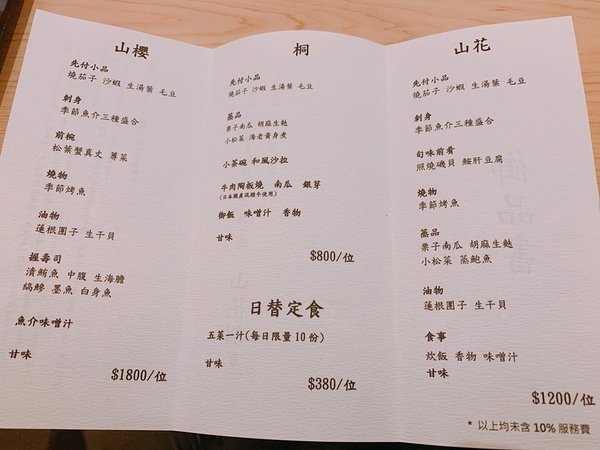 山櫻
先付小品
燒茄子 沙蝦 生湯葉 毛豆
刺身
季節魚介三種盛合
前椀
松葉蟹真丈 蓴菜
燒物
季節烤魚
油物
蓮根團子 生干貝
握壽司
漬鮪魚 中腹 生海膽
縞鰺 墨魚 白身魚
魚介味噌汁
甘味
$1800/位
桐
先付小品
燒茄子 沙蝦 生湯葉 毛豆
蒸品
栗子南瓜 胡麻生麩
小松菜 海老黃身煮
小茶碗 和風沙拉
牛肉陶板燒 南瓜 銀芽
(日本國產混種牛使用)
御飯 味噌汁 香物
甘味
$800/位
日替定食
五菜一汁(每日限量10份)
甘味
$380/位
山花
先付小品
燒茄子 沙蝦 生湯葉 毛豆
刺身
季節魚介三種盛合
旬味前肴
照燒磯貝 鮟肝豆腐
燒物
季節烤魚
蒸品
栗子南瓜 胡麻生麩
小松菜 蒸鮑魚
油物
蓮根團子 生干貝
食事
炊飯 香物 味噌汁
甘味
$1200/位
* 以上均未含 10% 服務費